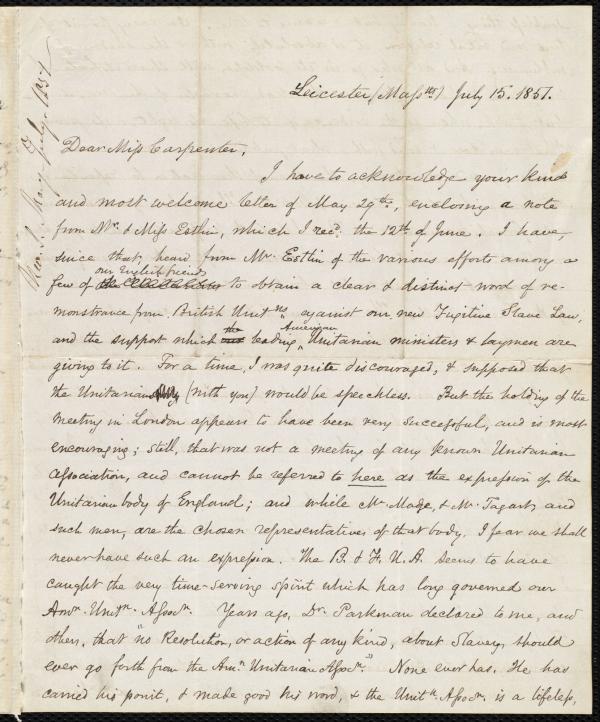 Leicester, (Massts) July 15. 1851.
Dear Miss Carpenter,
I have to acknowledge your kind
and most welcome letter of May 29th, enclosing a note
from Mr. & Miss Estlin, which I recd. the 12th of June. I have,
since that, heard from Mr. Estlin of the various efforts among a
our English friends
few of to obtain a clear & distinct word of re-
monstrance from British Unitns against our new Fugitive Slave Law,
the American
and the support which our leading Unitarian ministers & laymen are
giving to it. For a time, I was quite discouraged, & supposed that
the Unitarians (with you) would be speechless. But the holding of the
Meeting in London appears to have been very successful, and is most
encouraging; still, that was not a meeting of any known Unitarian
Association, and cannot be referred to here as the expression of the
Unitarian body of England; and while Mr. Madge, & Mr. Tagart, and
such men, are the chosen representatives of that body, I fear we shall
never have such an expression. The B. & F. U. A. seems to have
caught the very time-serving spirit which has long governed our
Amn. Unitn. Assocn. Years ago, Dr. Parkman declared to me, and
others, that "no Resolution, or action of any kind, about Slavery, should
ever go forth from the Amn. Unitarian Assocn." None ever has. He has
carried his point, & made good his word, & the Unitn. Assocn. is a lifeless,
Rev. S. May July 1851